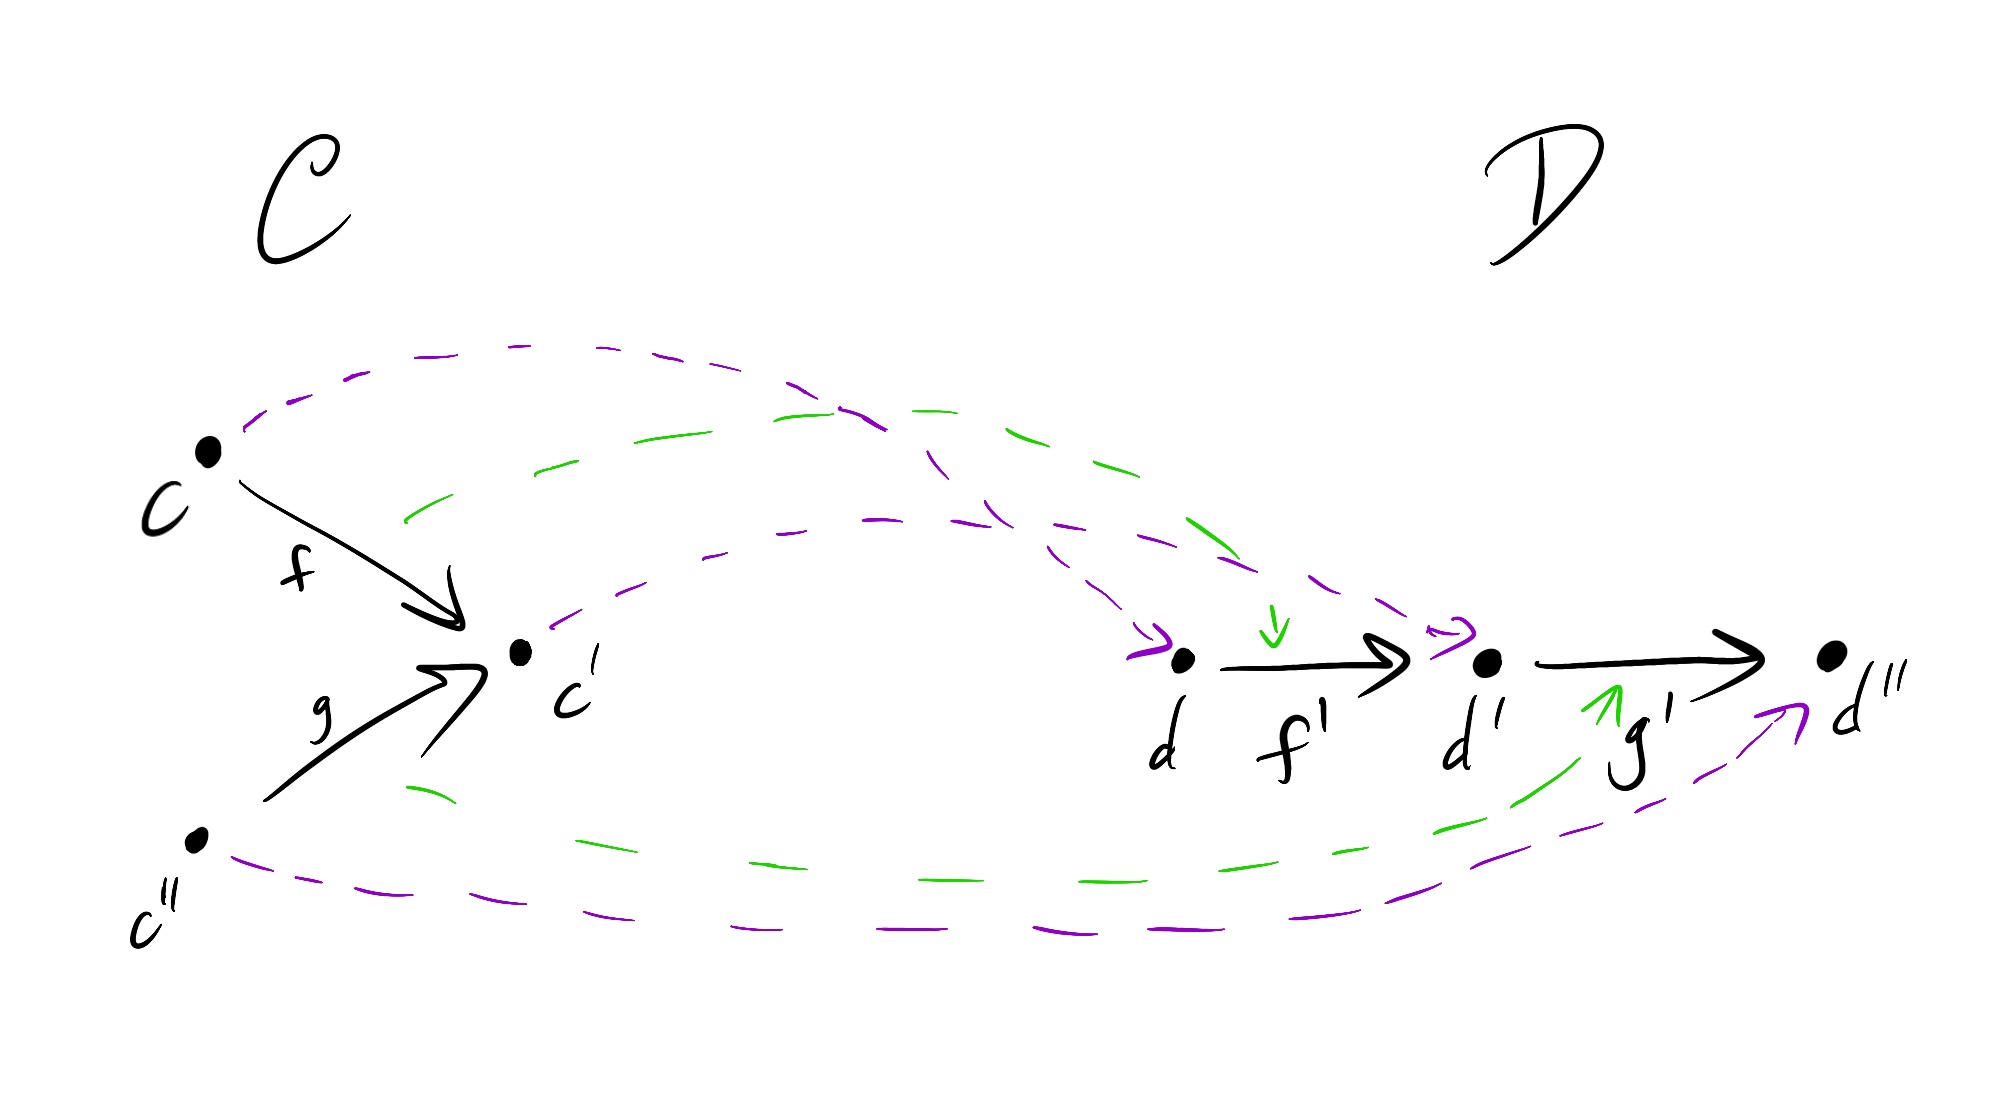 C
D
c
f
c'
g
c''
d
f'
d'
g'
d''